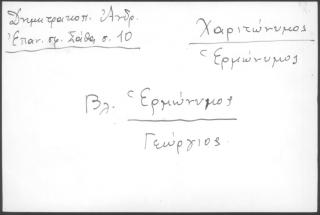 Δημητρακοπ. Ἀνδρ.
Ἐπαν. τρ. Σάθα, σ. 10
Χαριτώνυμος
Ἑρμώνυμος
Βλ. Ἑρμώνυμος
Γεώργιος.